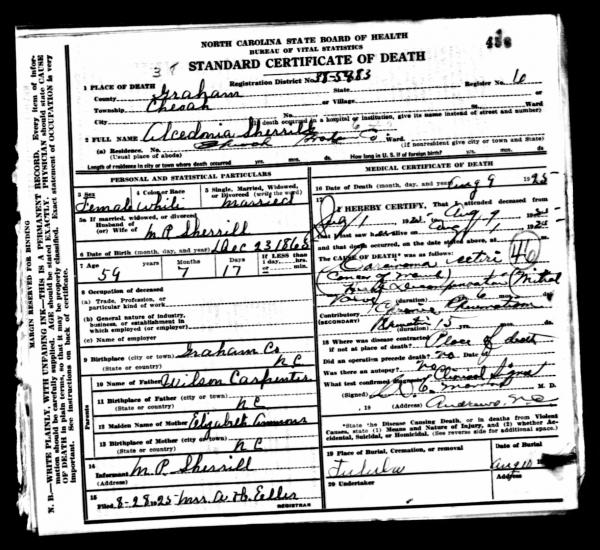 NORTH CAROLINA STATE BOARD OF HEALTH
BUREAU OF VITAL STATISTICS
STANDARD CERTIFICATE OF DEATH
1 PLACE OF DEATH
Registration District No. 38-5483
Register No. 10
County Graham
State
Township Cheoah
or Village
City
No.
Ward
(If death occurred in a hospital or institution, give its name instead of street and number)
2 FULL NAME Alcedonia Sherrill
(a) Residence. No.
Ward.
(Usual place of abode)
(If nonresident give city or town and State)
Length of residence in city or town where death occurred yrs. mos. ds.
How long in U. S. if of foreign birth? yrs. mos. ds.
PERSONAL AND STATISTICAL PARTICULARS
3 Sex
Female
4 Color or Race
White
5 Single, Married, Widowed,
or Divorced (write the word)
Married
5a If married, widowed, or divorced
Husband of
(or) Wife of M P Sherrill
6 Date of Birth (month, day, and year) Dec 23 1865
7 Age
59 years
Months
7
Days
17
If LESS than
8 Occupation of deceased
(a) Trade, Profession, or
particular kind of work
(b) General nature of industry,
business, or establishment in
which employed (or employer)
(c) Name of employer
9 Birthplace (city or town) Graham Co
(State or country) N C
Parents
10 Name of Father Wilson Carpenter
11 Birthplace of Father (city or town)
(State or country) N C
12 Maiden Name of Mother Elizabeth Ammons
13 Birthplace of Mother (city or town)
(State or country) N C
14
Informant M. P. Sherrill
15
Filed 8-28-1925 Mrs. A. B. Eller
REGISTRAR
MEDICAL CERTIFICATE OF DEATH
16 Date of Death (month, day, and year) Aug 9 1925
17
I HEREBY CERTIFY, That I attended deceased from
that I last saw her alive on
and that death occurred, on the date stated above, at
The CAUSE OF DEATH* was as follows:
46
Mitral
(duration)
Contributory
(SECONDARY)
18 Where was disease contracted
if not at place of death? Place of death
Did an operation precede death? no Date of
Was there an autopsy? no
What test confirmed diagnosis? Clinical Signs
(Signed)
M. D.
, 19 (Address) Andrews N C
*State the Disease Causing Death, or in deaths from Violent
Causes, state (1) Means and Nature of Injury, and (2) whether Ac-
cidental, Suicidal, or Homicidal. (See reverse side for additional space.)
19 Place of Burial, Cremation, or removal
Date of Burial
Aug 10
20 Undertaker
Address
MARGIN RESERVED FOR BINDING
N. B.—WRITE PLAINLY, WITH UNFADING INK—THIS IS A PERMANENT RECORD. Every item of infor-
mation should be carefully supplied. AGE should be stated EXACTLY. PHYSICIAN should state CAUSE
OF DEATH in plain terms, so that it may be properly classified. Exact statement of OCCUPATION is very
important. See instructions on back of certificate.